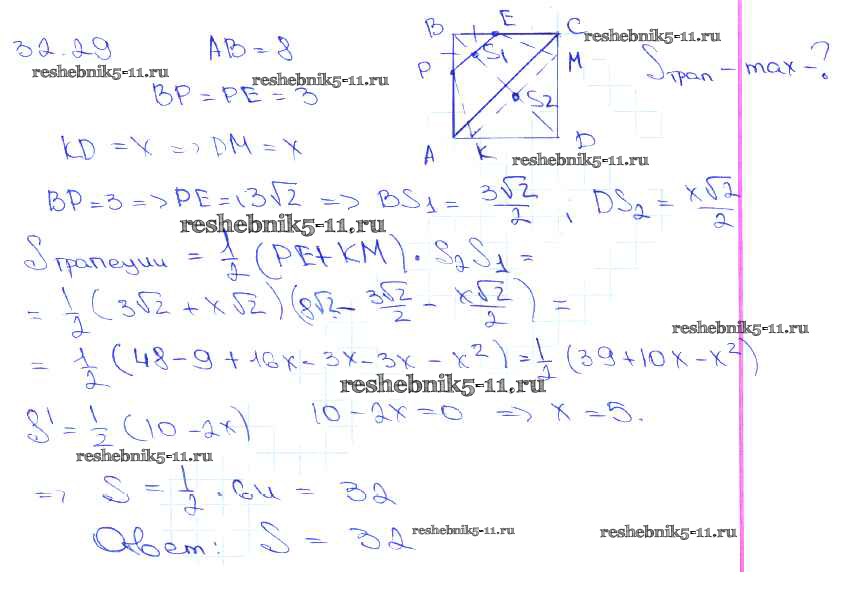 32.29 AB = 8
BP = PE = 3
B E C
P S1 M
S2
A K D
Sтрап – max – ?
reshebnik5-11.ru
reshebnik5-11.ru
reshebnik5-11.ru
reshebnik5-11.ru
KD = x => DM = x
BP = 3 => PE = 3√2 => BS1 = 3√2/2 ; DS2 = x√2/2
reshebnik5-11.ru
Sтрапеции = 1/2 (PE + KM) · S2S1 =
= 1/2 (3√2 + x√2)(8√2 – 3√2/2 – x√2/2) =
reshebnik5-11.ru
= 1/2 (48 – 9 + 16x – 3x – 3x – x²) = 1/2 (39 + 10x – x²)
reshebnik5-11.ru
S' = 1/2 (10 – 2x) 10 – 2x = 0 => x = 5.
reshebnik5-11.ru
=> S = 1/2 · 64 = 32
Ответ: S = 32
reshebnik5-11.ru
reshebnik5-11.ru